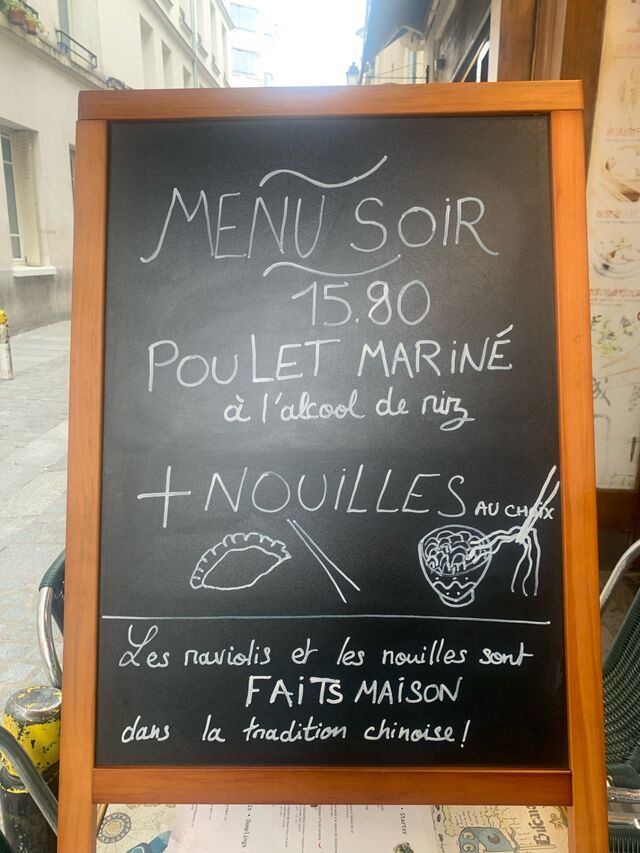 MENU SOIR
15.90
POULET MARINÉ
à l'alcool de riz
+ NOUILLES AU CHOIX
Les raviolis et les nouilles sont
FAITS MAISON
dans la tradition chinoise!